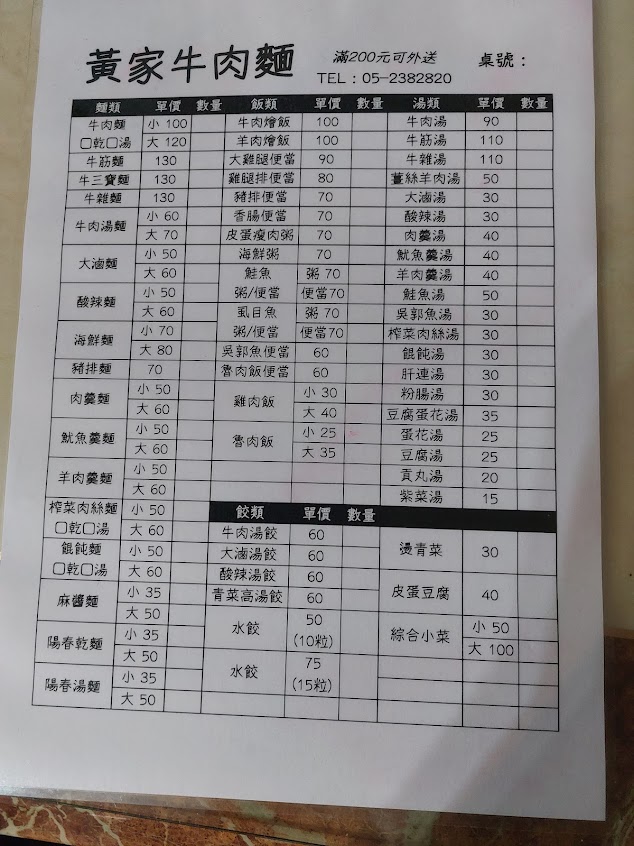 黃家牛肉麵
滿200元可外送
桌號：
TEL：05-2382820
麵類 單價 數量 飯類 單價 數量 湯類 單價 數量
牛肉麵 小 100 牛肉燴飯 100 牛肉湯 90
□乾□湯 大 120 羊肉燴飯 100 牛筋湯 110
牛筋麵 130 大雞腿便當 90 牛雜湯 110
牛三寶麵 130 雞腿排便當 80 薑絲羊肉湯 50
牛雜麵 130 豬排便當 70 大滷湯 30
牛肉湯麵 小 60 香腸便當 70 酸辣湯 30
大 70 皮蛋瘦肉粥 70 肉羹湯 40
大滷麵 小 50 海鮮粥 70 魷魚羹湯 40
大 60 鮭魚 粥 70 羊肉羹湯 40
酸辣麵 小 50 粥/便當 便當70 鮭魚湯 50
大 60 虱目魚 粥 70 吳郭魚湯 30
海鮮麵 小 70 粥/便當 便當70 榨菜肉絲湯 30
大 80 吳郭魚便當 60 餛飩湯 30
豬排麵 70 魯肉飯便當 60 肝連湯 30
肉羹麵 小 50 雞肉飯 小 30 粉腸湯 30
大 60 大 40 豆腐蛋花湯 35
魷魚羹麵 小 50 魯肉飯 小 25 蛋花湯 25
大 60 大 35 豆腐湯 25
羊肉羹麵 小 50 貢丸湯 20
大 60 紫菜湯 15
榨菜肉絲麵 小 50 餃類 單價 數量
□乾□湯 大 60 牛肉湯餃 60 燙青菜 30
餛飩麵 小 50 大滷湯餃 60
□乾□湯 大 60 酸辣湯餃 60 皮蛋豆腐 40
麻醬麵 小 35 青菜高湯餃 60
大 50 水餃 50 綜合小菜 小 50
陽春乾麵 小 35 (10粒) 大 100
大 50 水餃 75
陽春湯麵 小 35 (15粒)
大 50